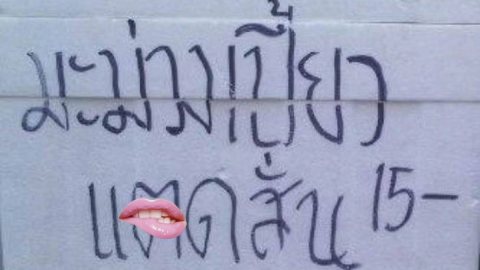 มะม่วมเปี้ยว
แตดสั่น 15-